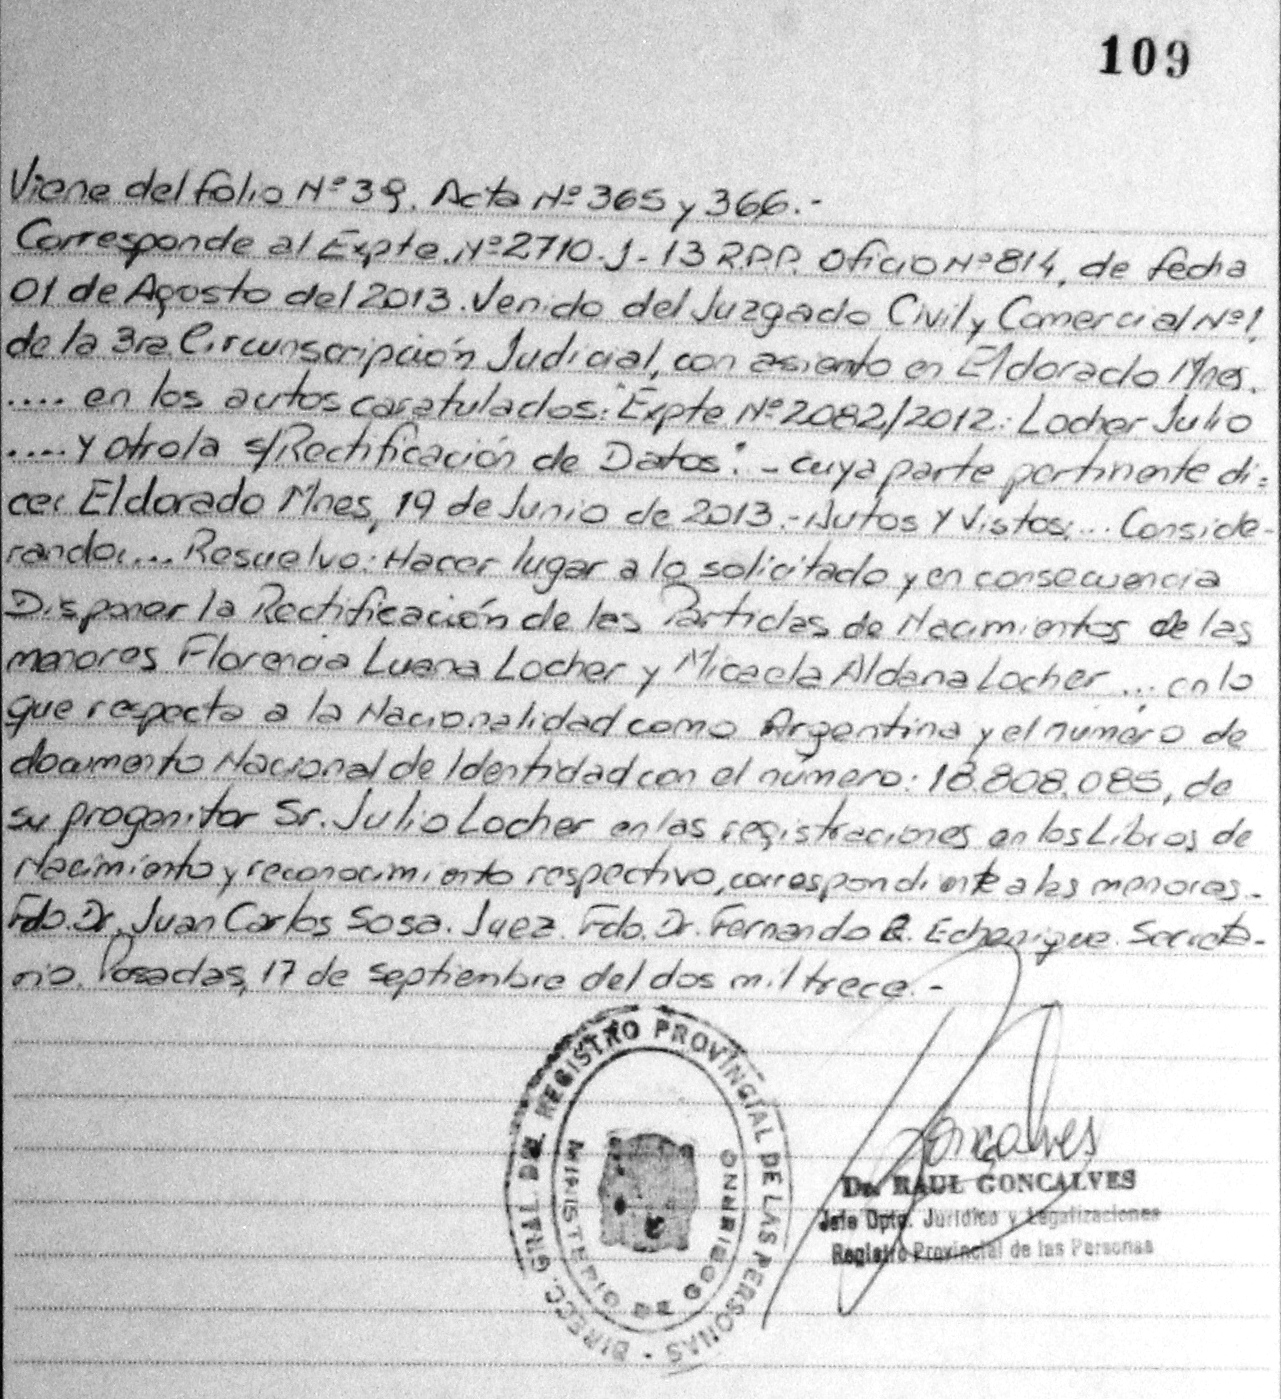 109
Viene del folio Nº 39. Acta Nº 365 y 366.-
Corresponde al Expte. Nº 2710. J - 13 R.P.P. Oficio Nº 814, de fecha
01 de Agosto del 2013. Venido del Juzgado Civil y Comercial Nº 1,
de la 3ra Circunscripción Judicial, con asiento en Eldorado Mnes.
.... en los autos caratulados: "Expte Nº 2082/2012: Locher Julio
.... y otro/a s/Rectificación de Datos". - cuya parte pertinente di=
ce: Eldorado Mnes, 19 de Junio de 2013.- Autos y Vistos:... Conside-
rando:... Resuelvo: Hacer lugar a lo solicitado y en consecuencia
Disponer la Rectificación de las Partidas de Nacimientos de las
menores Florencia Luana Locher y Micaela Aldana Locher ...; en lo
que respecta a la Nacionalidad como Argentina y el número de
documento Nacional de Identidad con el número: 18.808.085, de
su progenitor Sr. Julio Locher en las registraciones en los Libros de
Nacimiento y reconocimiento respectivo, correspondiente a las menores.-
Fdo. Dr. Juan Carlos Sosa. Juez. Fdo. Dr. Fernando Echenique. Secreta-
rio. Posadas, 17 de septiembre del dos mil trece.-
DIRECC. GRAL. DEL REGISTRO PROVINCIAL DE LAS PERSONAS -
MINISTERIO DE GOBIERNO
Goncalves
Dr. RAUL GONCALVES
Jefe Dpto. Jurídico y Legalizaciones
Registro Provincial de las Personas